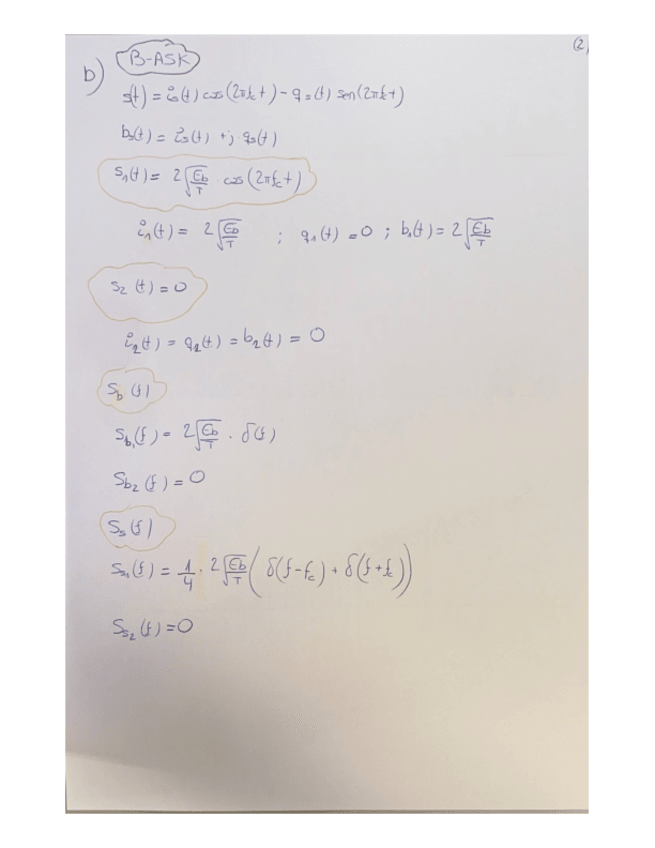 (2)
b) B-ASK
s(t) = is(t) cos(2πfct) - qs(t) sen(2πfct)
bs(t) = is(t) + j qs(t)
s1(t) = 2√(Eb/T) · cos(2πfct)
i1(t) = 2√(Eb/T) ; q1(t) = 0 ; b1(t) = 2√(Eb/T)
s2(t) = 0
i2(t) = q2(t) = b2(t) = 0
Sb(f)
Sb1(f) = 2√(Eb/T) · δ(f)
Sb2(f) = 0
Ss(f)
Ss1(f) = 1/4 · 2√(Eb/T) (δ(f-fc) + δ(f+fc))
Ss2(f) = 0